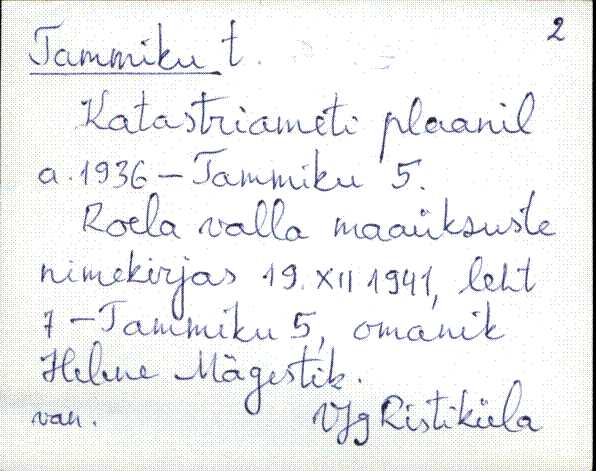 2
Tammiku t.
Katastriameti plaanil
a. 1936 – Tammiku 5.
Roela valla maaüksuste
nimekirjas 19. XII 1941, leht
7 – Tammiku 5, omanik
Helene Mägestik.
van. VJg Ristiküla